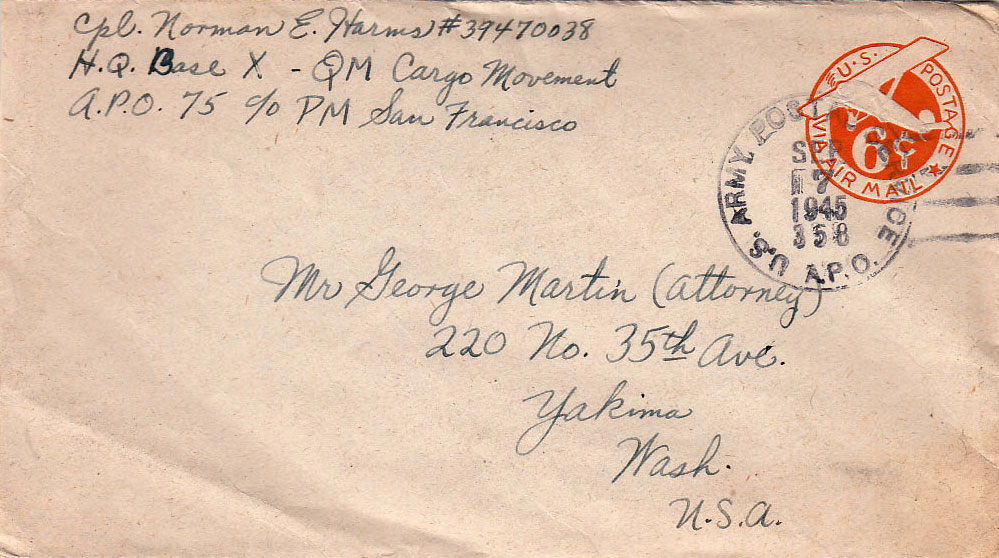 Cpl. Norman E. Harms #39470038
H.Q. Base X - QM Cargo Movement
A.P.O. 75 c/o PM San Francisco
U.S. POSTAGE
6¢
VIA AIR MAIL
U.S. ARMY POSTAL SERVICE
SEP
17
1945
358
A.P.O.
Mr George Martin (attorney)
220 No. 35th Ave.
Yakima
Wash.
U.S.A.